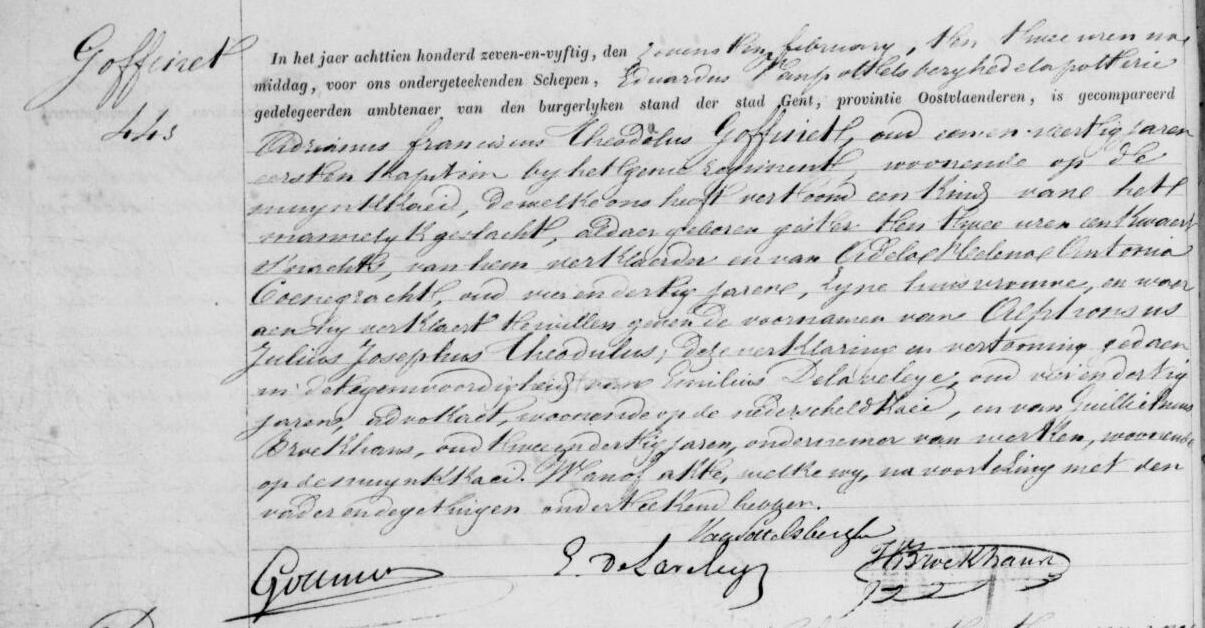 Goffinet
443
In het jaer achttien honderd zeven-en-vyftig, den zevensten february, ten twee uren na
middag, voor ons ondergeteekenden Schepen, Eduardus Vanpottelsberghedelapotterie
gedelegeerden ambtenaer van den burgerlyken stand der stad Gent, provintie Oostvlaenderen, is gecompareerd
Adrianus franciscus Theodulus Goffinet, oud eenen veertig jaren
eersten kapitein by het genie regiment, woonende op de
muynkkaei, dewelke ons heeft vertoond een kind van het
mannelyk geslacht, aldaer geboren gister ten twee uren een kwaert
s'nachts, van hem verklaerder en van Adela Helena Antonia
Coenegracht, oud vierendertig jaren, zyne huisvrouwe, en waer
aen hy verklaert te willen geven de voornamen van Alphonsus
Julius Josephus Theodulus; deze verklaring en vertooning gedaen
in de tegenwoordigheid van Emilius Delaveleye, oud vierendertig
jaren, advokaet, woonende op de nederscheldkaei, en van Guillielmus
Broekhans, oud tweendertig jaren, ondernemer van werken, woonende
op de muynkkaei. Waerof akte, welke wy, na voorlezing met den
vader en de getuigen onderteekend hebben.
Vanpottelsberghe
Goffinet
E. De Laveleye
Broekhans